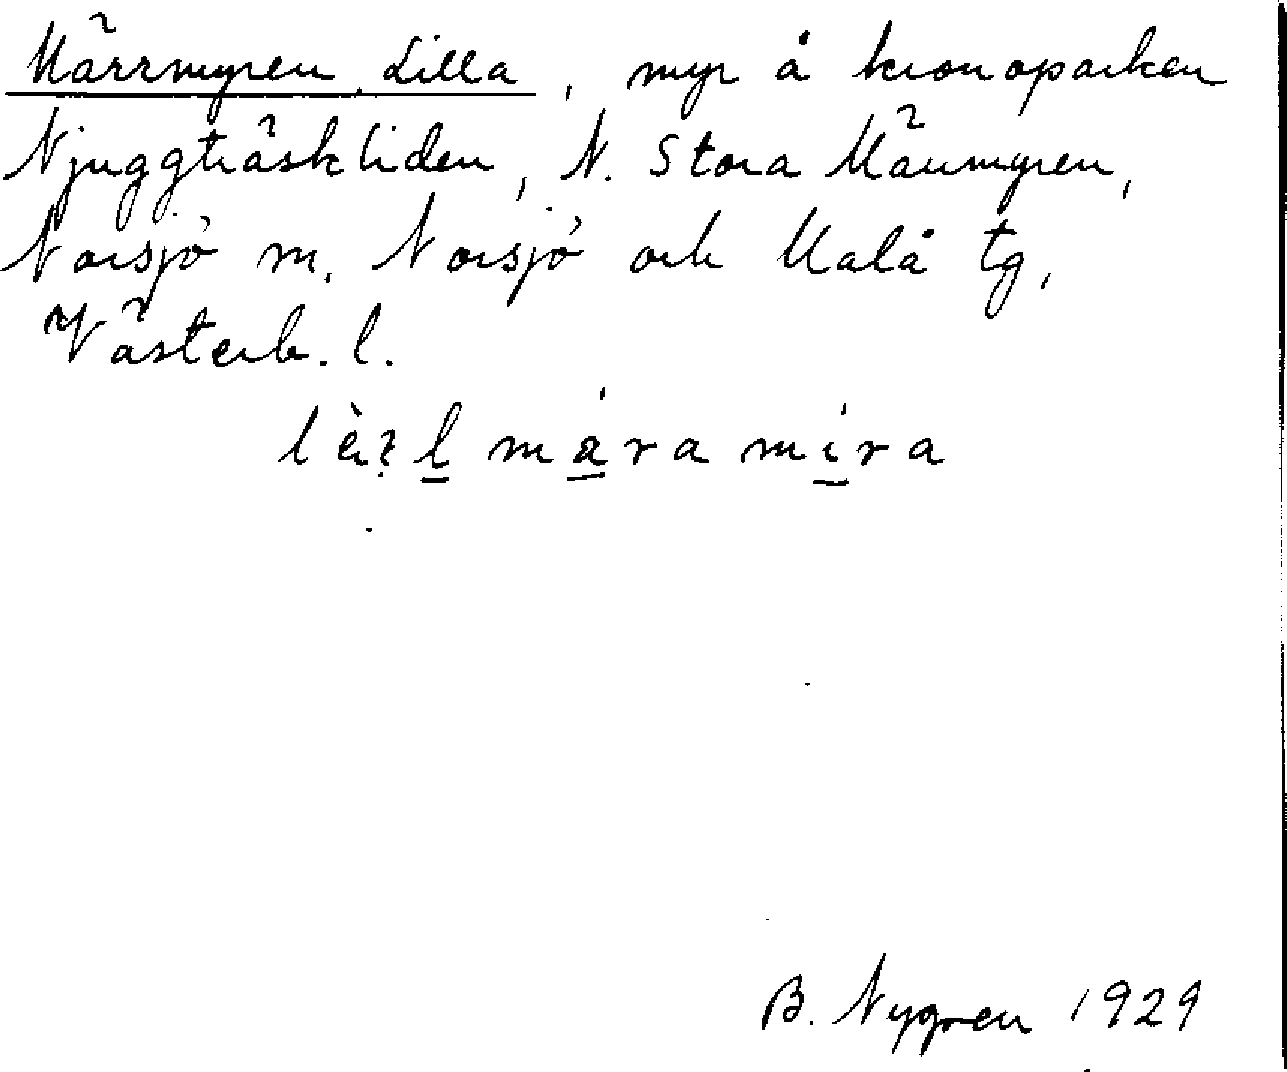 Märrmyren, Lilla, myr å kronoparken
Njuggträskliden, N. Stora Märrmyren,
Norsjö m. Norsjö och Malå tg,
Västerb. l.
mára míra
B. Nygren 1929